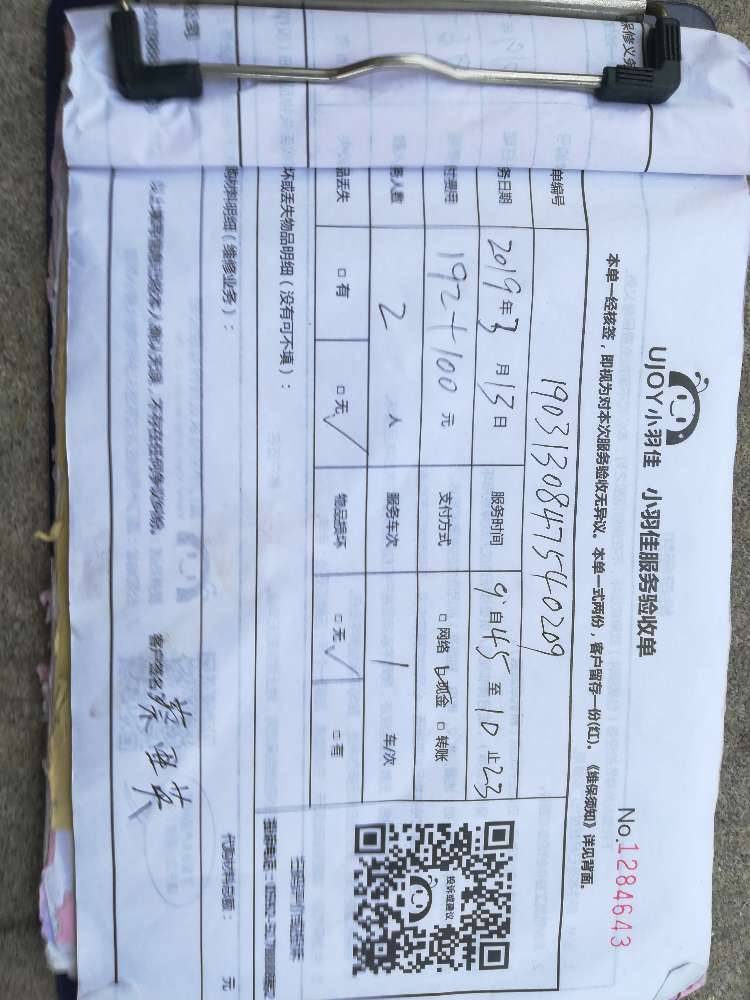 UJOY小羽佳 小羽佳服务验收单
No.1284643
本单一经核签，即视为对本次服务验收无异议。本单一式两份，客户留存一份(红)。《维保须知》详见背面。
单编号 1903130847540209
务日期 2019年3月13日 服务时间 9:自45至10止23
费用 192+100元 支付方式 □网络 □现金 □转账
务人数 2人 服务车次 1车/次
品丢失 □有 □无✓ 物品损坏 □无✓ □有
投诉或建议
坏或丢失物品明细（没有可不填）：
材料明细（维修业务）：
代购材料总额： 元
客户签名
保修义务